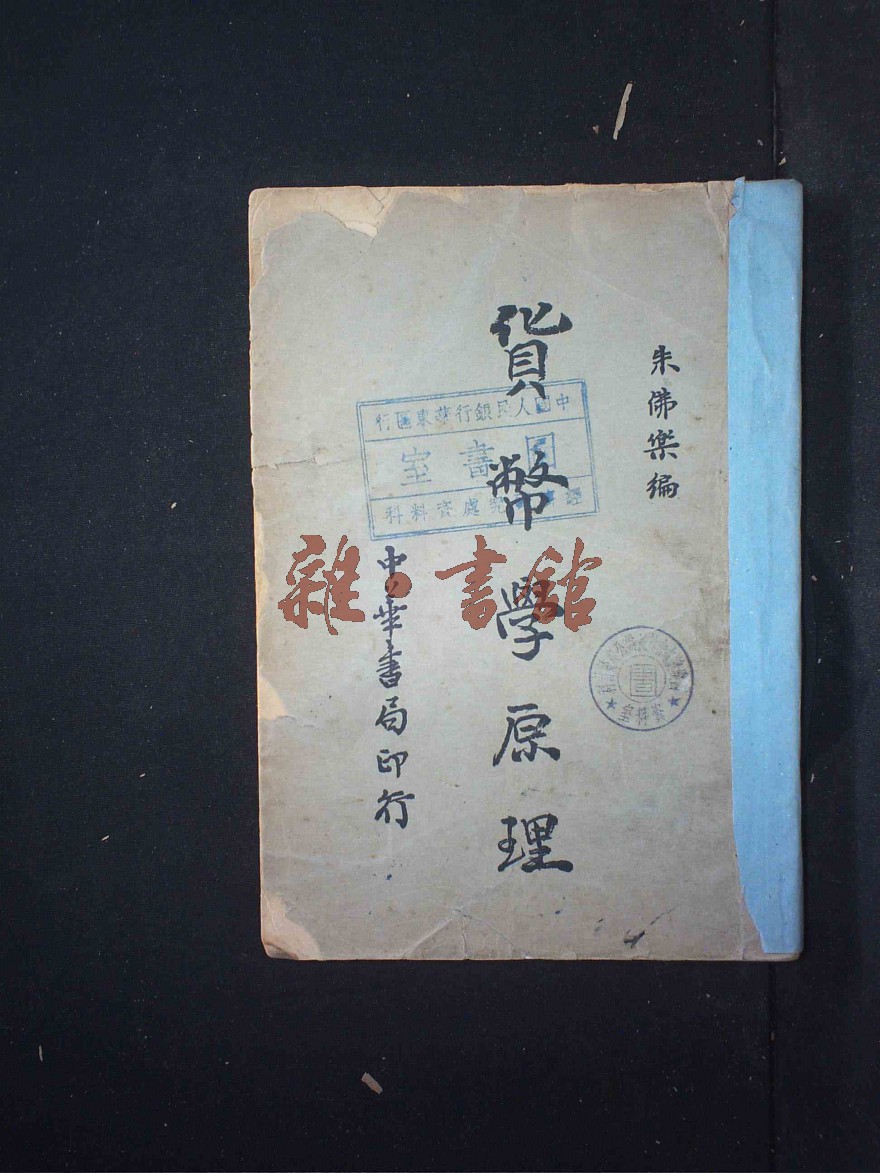 朱佛樂編
貨幣學原理
中華書局印行
中國人民銀行華東區行
圖書室
處資料科
雜·書館
資料室